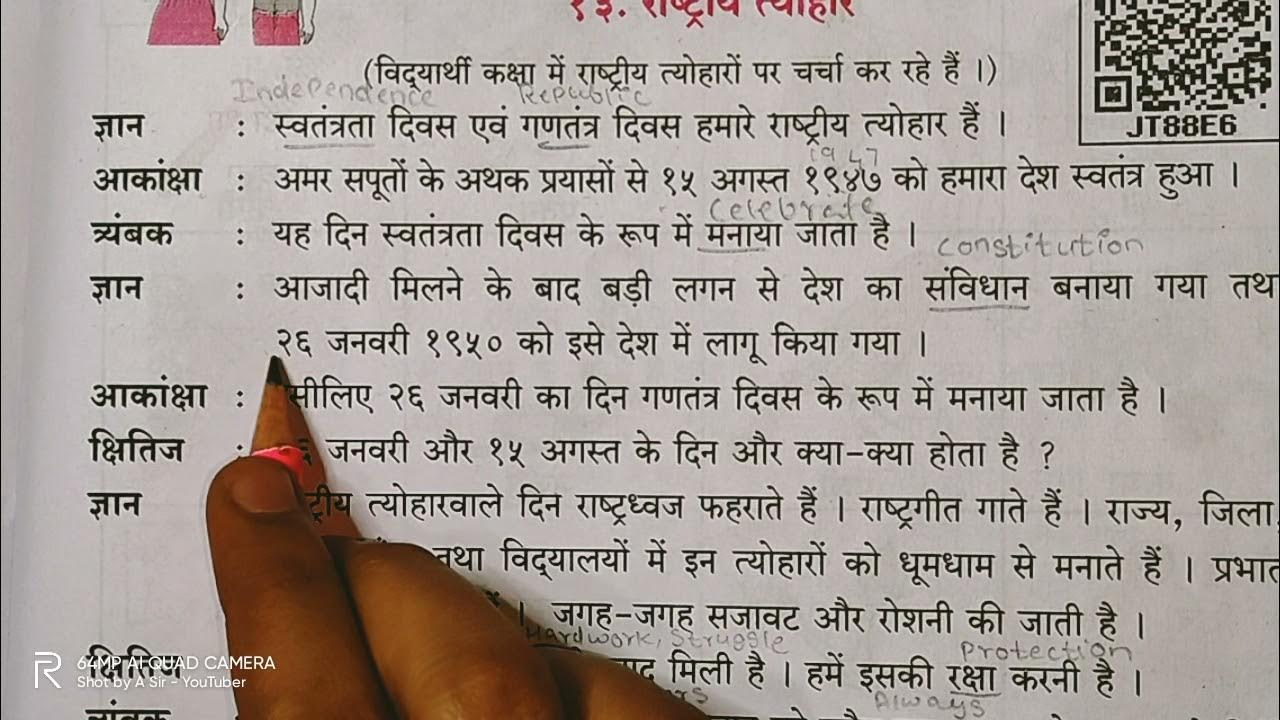 १३. राष्ट्रीय त्योहार
(विद्यार्थी कक्षा में राष्ट्रीय त्योहारों पर चर्चा कर रहे हैं ।)
Independence Republic
ज्ञान : स्वतंत्रता दिवस एवं गणतंत्र दिवस हमारे राष्ट्रीय त्योहार हैं ।
JT88E6
1947
आकांक्षा : अमर सपूतों के अथक प्रयासों से १५ अगस्त १९४७ को हमारा देश स्वतंत्र हुआ ।
celebrate
त्र्यंबक : यह दिन स्वतंत्रता दिवस के रूप में मनाया जाता है ।
constitution
ज्ञान : आजादी मिलने के बाद बड़ी लगन से देश का संविधान बनाया गया तथा
२६ जनवरी १९५० को इसे देश में लागू किया गया ।
आकांक्षा : सीलिए २६ जनवरी का दिन गणतंत्र दिवस के रूप में मनाया जाता है ।
क्षितिज : जनवरी और १५ अगस्त के दिन और क्या-क्या होता है ?
ज्ञान ट्रीय त्योहारवाले दिन राष्ट्रध्वज फहराते हैं । राष्ट्रगीत गाते हैं । राज्य, जिला,
तथा विद्यालयों में इन त्योहारों को धूमधाम से मनाते हैं । प्रभात
। जगह-जगह सजावट और रोशनी की जाती है ।
Hardwork, Struggle Protection
क्षितिज मिली है । हमें इसकी रक्षा करनी है ।
Always
64MP AI QUAD CAMERA
Shot by A Sir - YouTuber